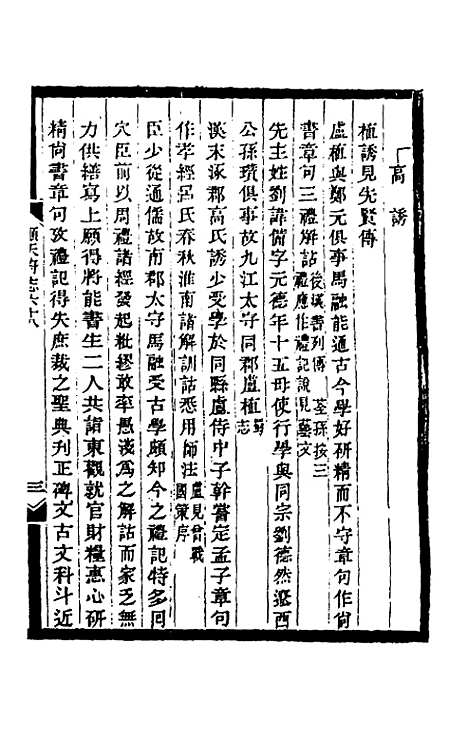 高誘
植誘見先賢傳
盧植與鄭元俱事馬融能通古今學好研精而不守章句作尙
書章句三禮解詁後漢書列傳 荃孫按三禮應作禮記說見藝文
先主姓劉諱備字元德年十五母使行學與同宗劉德然遼西
公孫瓚俱事故九江太守同郡盧植蜀志
漢末涿郡高氏誘少受學於同縣盧侍中子幹嘗定孟子章句
作孝經呂氏春秋淮南諸解訓詁悉用師法盧見曾戰國策序
臣少從通儒故南郡太守馬融受古學頗知今之禮記特多回
穴臣前以周禮諸經發起粃繆敢率愚淺爲之解詁而家乏無
力供繕寫上願得將能書生二人共詣東觀就官財糧惠心研
精尙書章句攷禮記得失庶裁之聖典刊正碑文古文科斗近
順天府志六十八
三